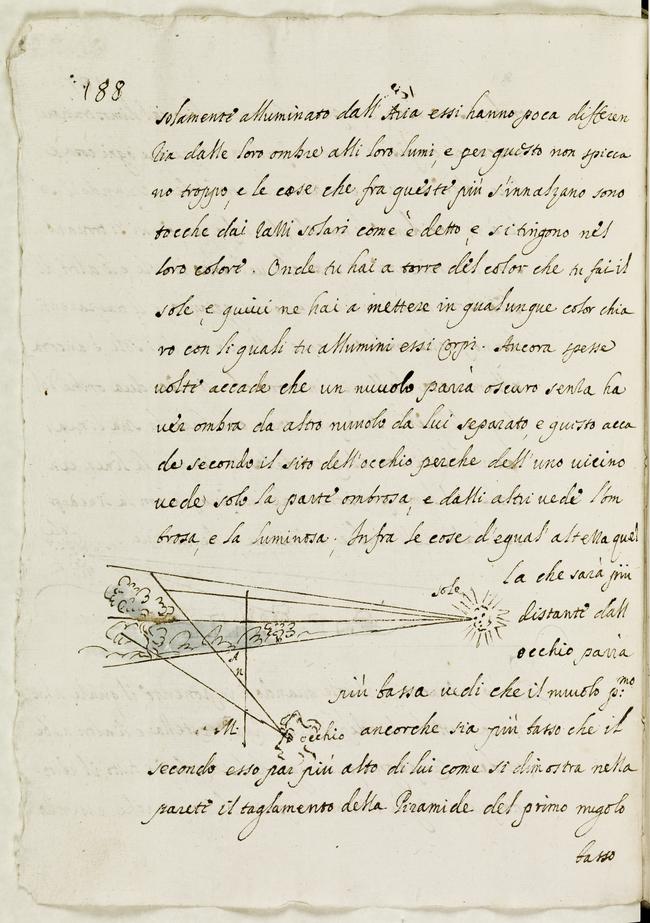 188
solamente alluminato dall'Aria essi hanno poca differen
zia dalle loro ombre alli loro lumi, e per questo non spicca
no troppo, e le cose che fra queste più s'innalzano sono
tocche dai razzi solari come è detto, e si tingono nel
loro colore. Onde tu hai a torre del color che tu fai il
sole, e quivi ne hai a mettere in qualunque color chia
ro con li quali tu allumini essi Corpi. Ancora spesse
volte accade che un nuvolo parrà oscuro senza ha
ver ombra da altro nuvolo da lui separato, e questo acca
de secondo il sito dell'occhio perche dell'uno vicino
vede solo la parte ombrosa, e dalli altri vede l'om
brosa, e la luminosa; Infra le cose d'egual altezza quel
la che sarà più
sole
distante dall
occhio parrà
più bassa vedi che il nuvolo p:mo
M.
occhio
ancorche sia più basso che il
secondo esso par più alto di lui come si dimostra nella
parete il taglamento della Piramide del primo nugolo
basso